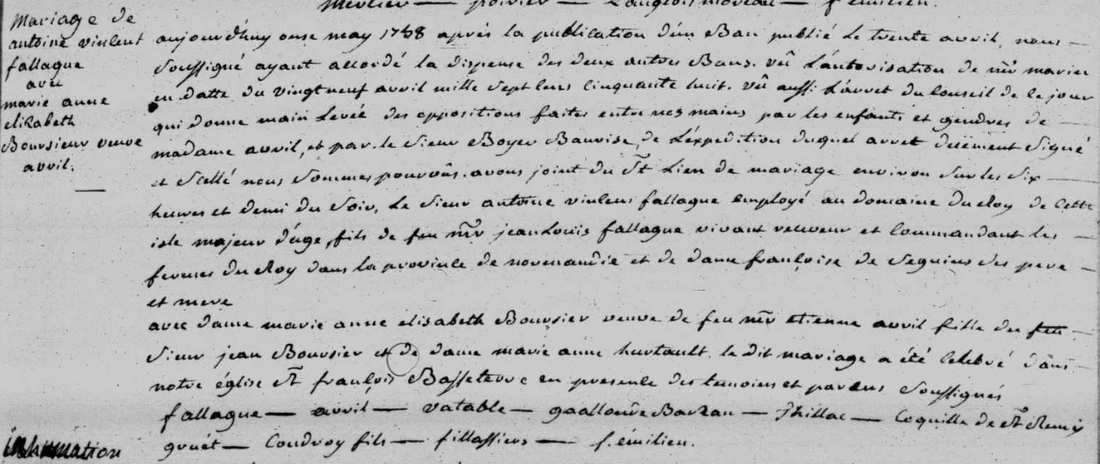 Mariage de
antoine vinlent
fallague
avec
marie anne
elizabeth
Boursieur veuve
avril.
mercier — poirier — Langlois moreau — f. émilien.
aujourd'huy onse may 1758 après la publication d'un Ban publié le trente avril, nous —
Soussigné ayant accordé la dispense des deux autres Bans. vû L'autorisation de mr marin
en datte du vingt neuf avril mille sept cens cinquante huit. Vû aussi L'arret du conseil de le jour
qui donne main Levée des oppositions faites entre nos mains par les enfants et gendres de —
madame avril, et par le Sieur Boyer Bauvise, de L'expedition duquel arret duement signé
et Scellé nous Sommes pourvûs. avons joint du St Lien de mariage environ sur les Six —
heures et demi du Soir, Le Sieur antoine vinlens fallague employé au domaine du Roy de Cette
isle majeur d'âge, fils de feu mr jean Louis fallague vivant reveveur et Commandant les —
fermes du Roy dans la province de normandie et de dame françoise de Seguins des pere —
et mere
avec dame marie anne elisabeth Boursier veuve de feu mr etienne avril fille des feu —
Sieur jean Boursier et de dame marie anne hurtault. le dit mariage a été celebré dans
notre église St françois Basseterre en presence des temoins et parens Soussignés
fallague — avril — vatable — — Thillac — Coquille de St Remy
gruet — Coudroy fils — fillassiers — f. émilien.
inhumation